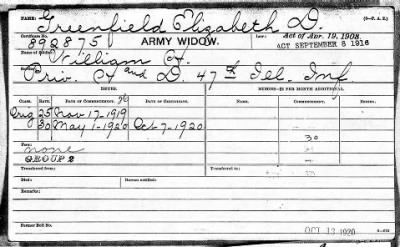 NAME: Greenfield Elizabeth D.
Certificate No. Law: Act of Apr. 19, 1908.
892875 ARMY WIDOW. ACT SEPTEMBER 8 1916
William H.
Priv. H and D. 47th Ill. Inf
ISSUES. MINORS—$2 PER MONTH ADDITIONAL.
CLASS. RATE. DATE OF COMMENCEMENT. DATE OF CERTIFICATE.
Orig 25 Nov 17-1919
30 May 1-1920 Oct 7-1920
30
Fees:
none
GROUP 2
Transferred to: Transferred from:
Died: Bureau notified:
Remarks:
Former Roll No. OCT 13 1920